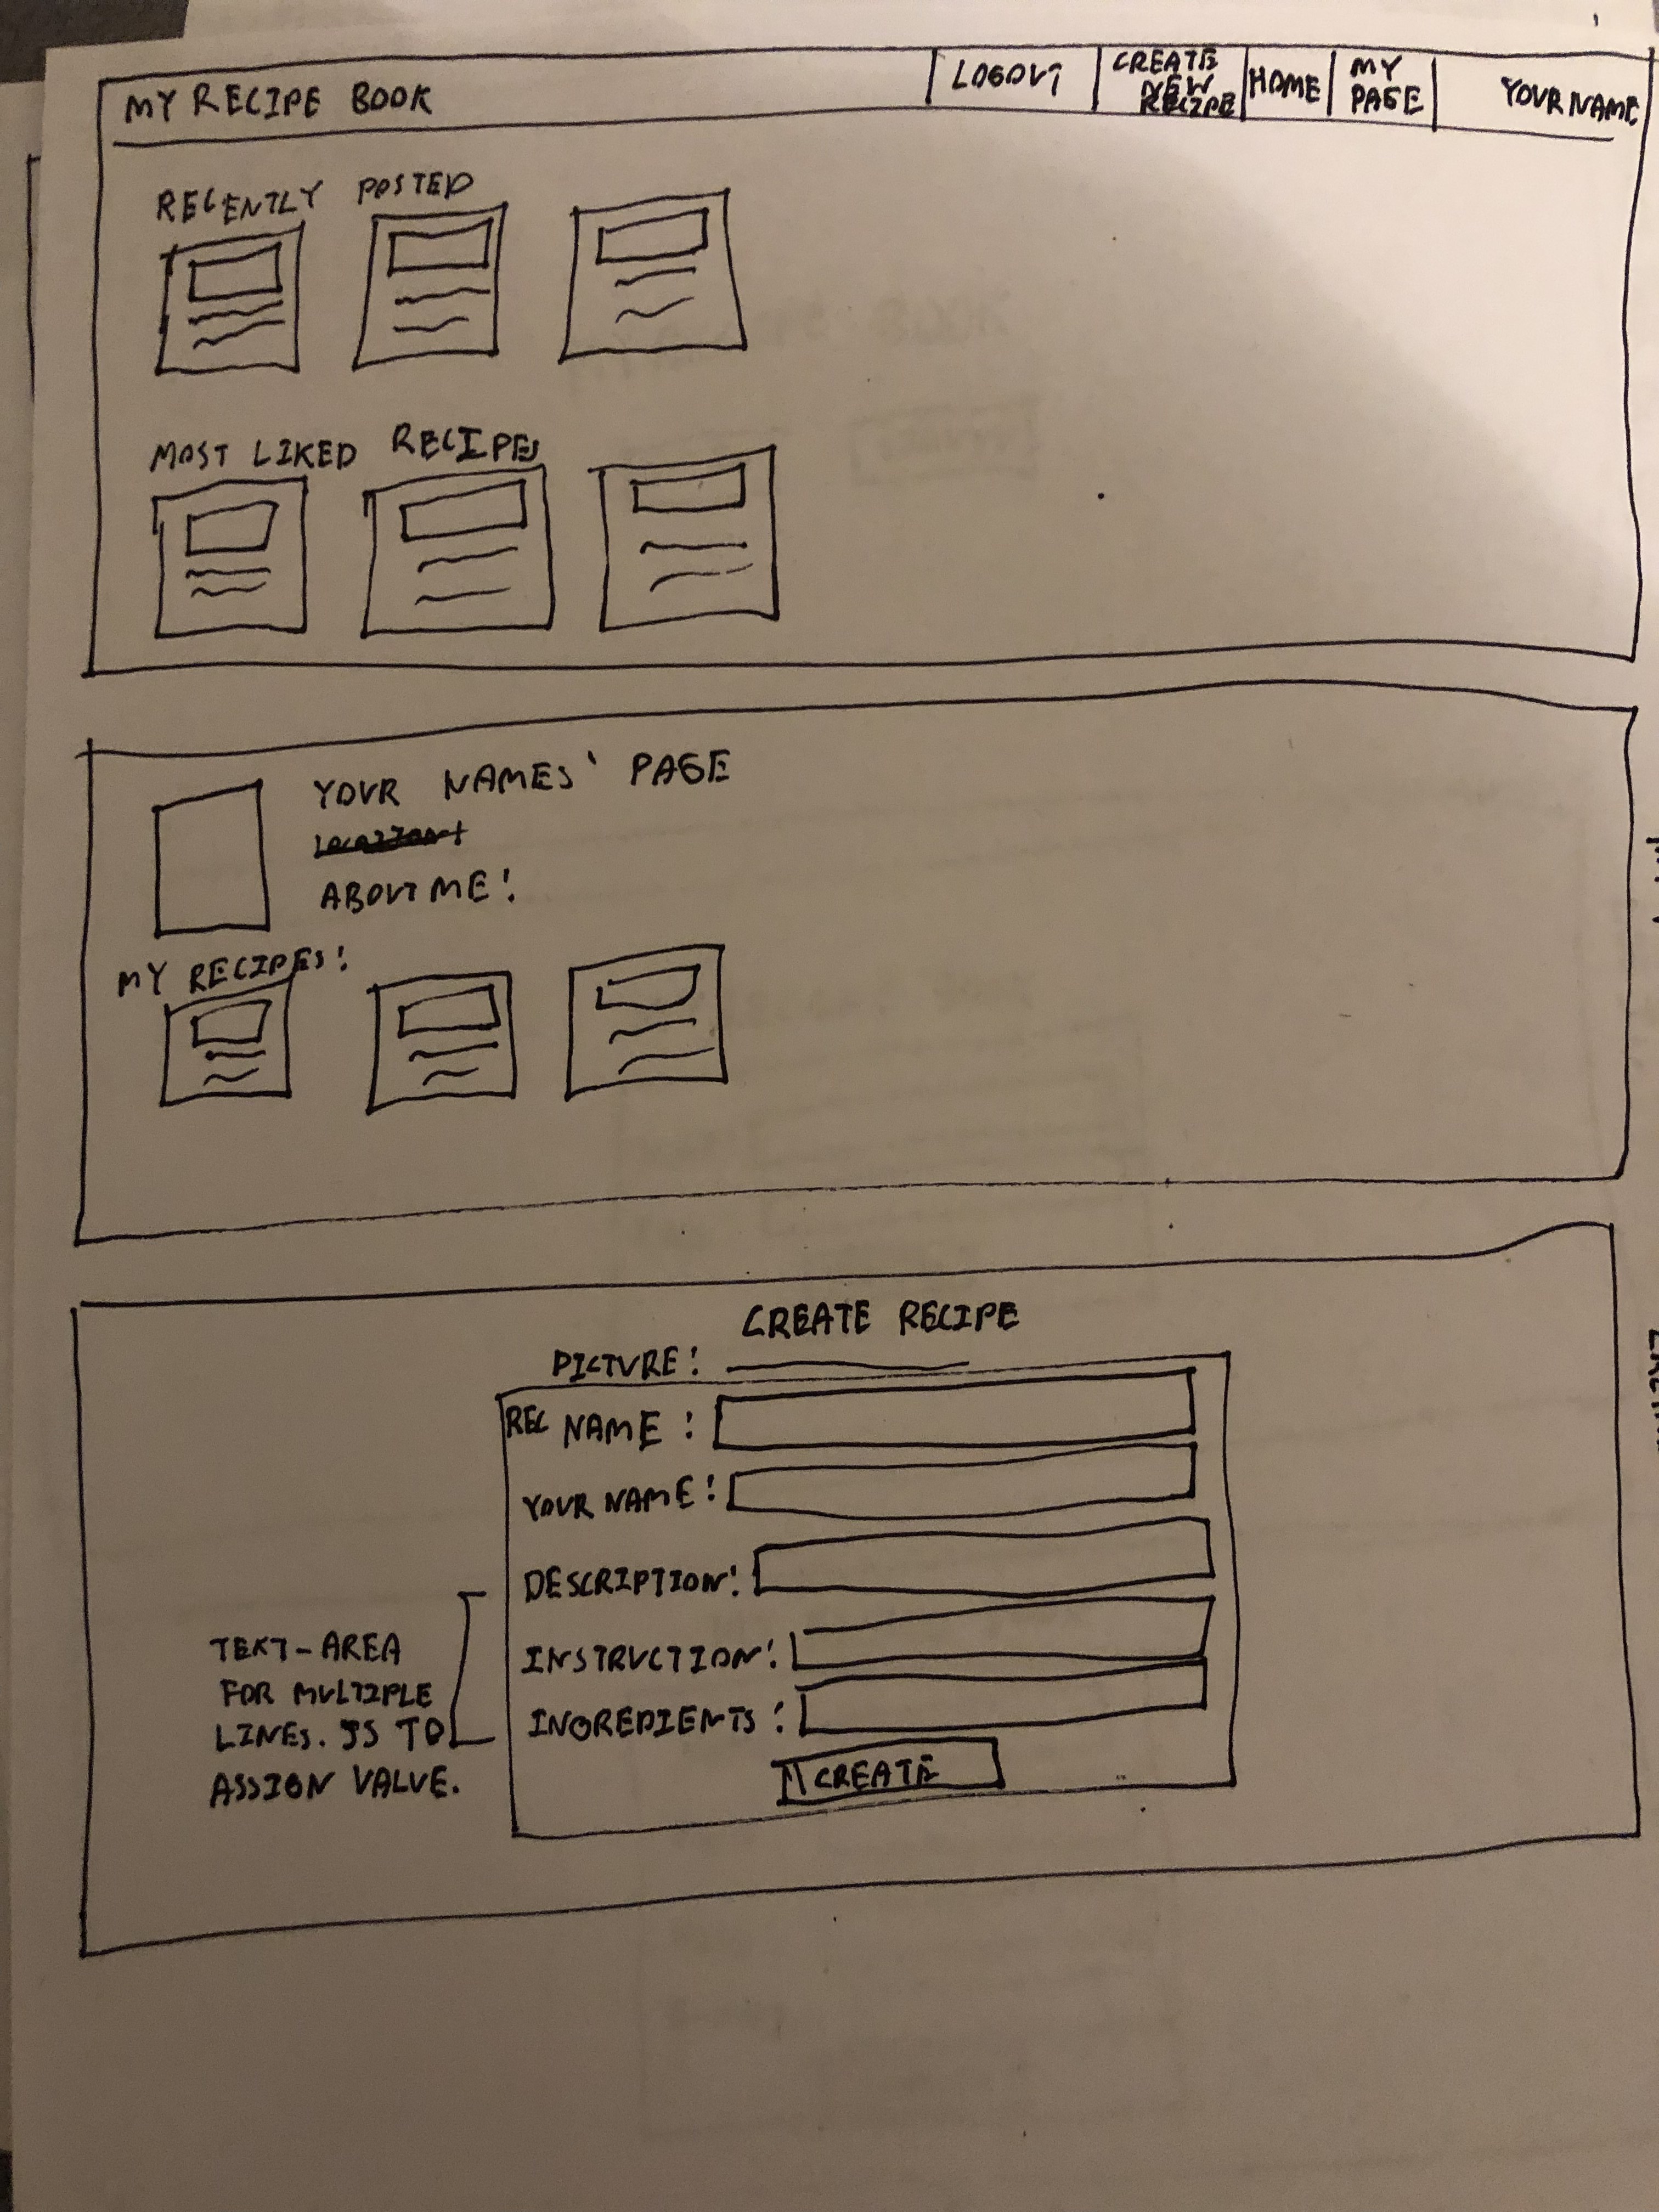 MY RECIPE BOOK
LOGOUT
CREATE NEW RECIPE
HOME
MY PAGE
YOUR NAME
RECENTLY POSTED
MOST LIKED RECIPES
YOUR NAMES' PAGE
ABOUT ME:
MY RECIPES:
CREATE RECIPE
PICTURE:
REC NAME:
YOUR NAME:
DESCRIPTION:
INSTRUCTION:
INGREDIENTS:
CREATE
TEXT-AREA
FOR MULTIPLE
LINES. JS TO
ASSIGN VALUE.